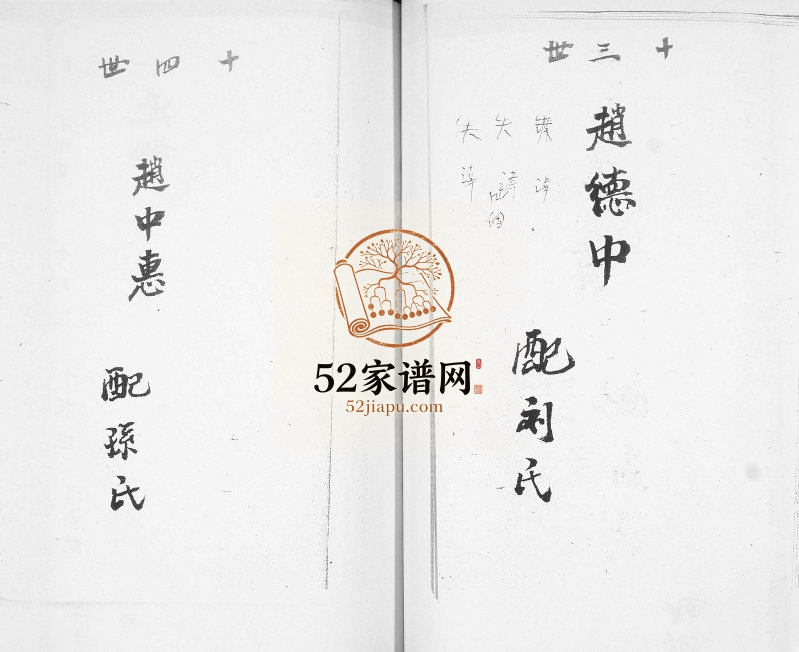 十三世
趙德中
配刘氏
失
失
十四世
趙中惠
配孫氏
52家谱网
52jiapu.com